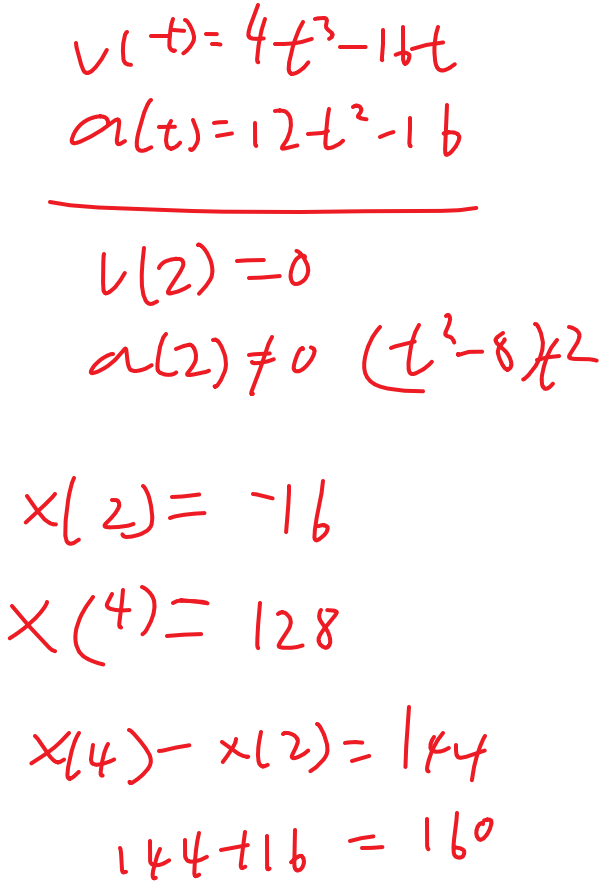 v(t)=4t³-16t
a(t)=12t²-16
v(2)=0
a(2)≠0 (t²-8)t²
x(2)=-16
x(4)=128
x(4)-x(2)=144
144+16=160